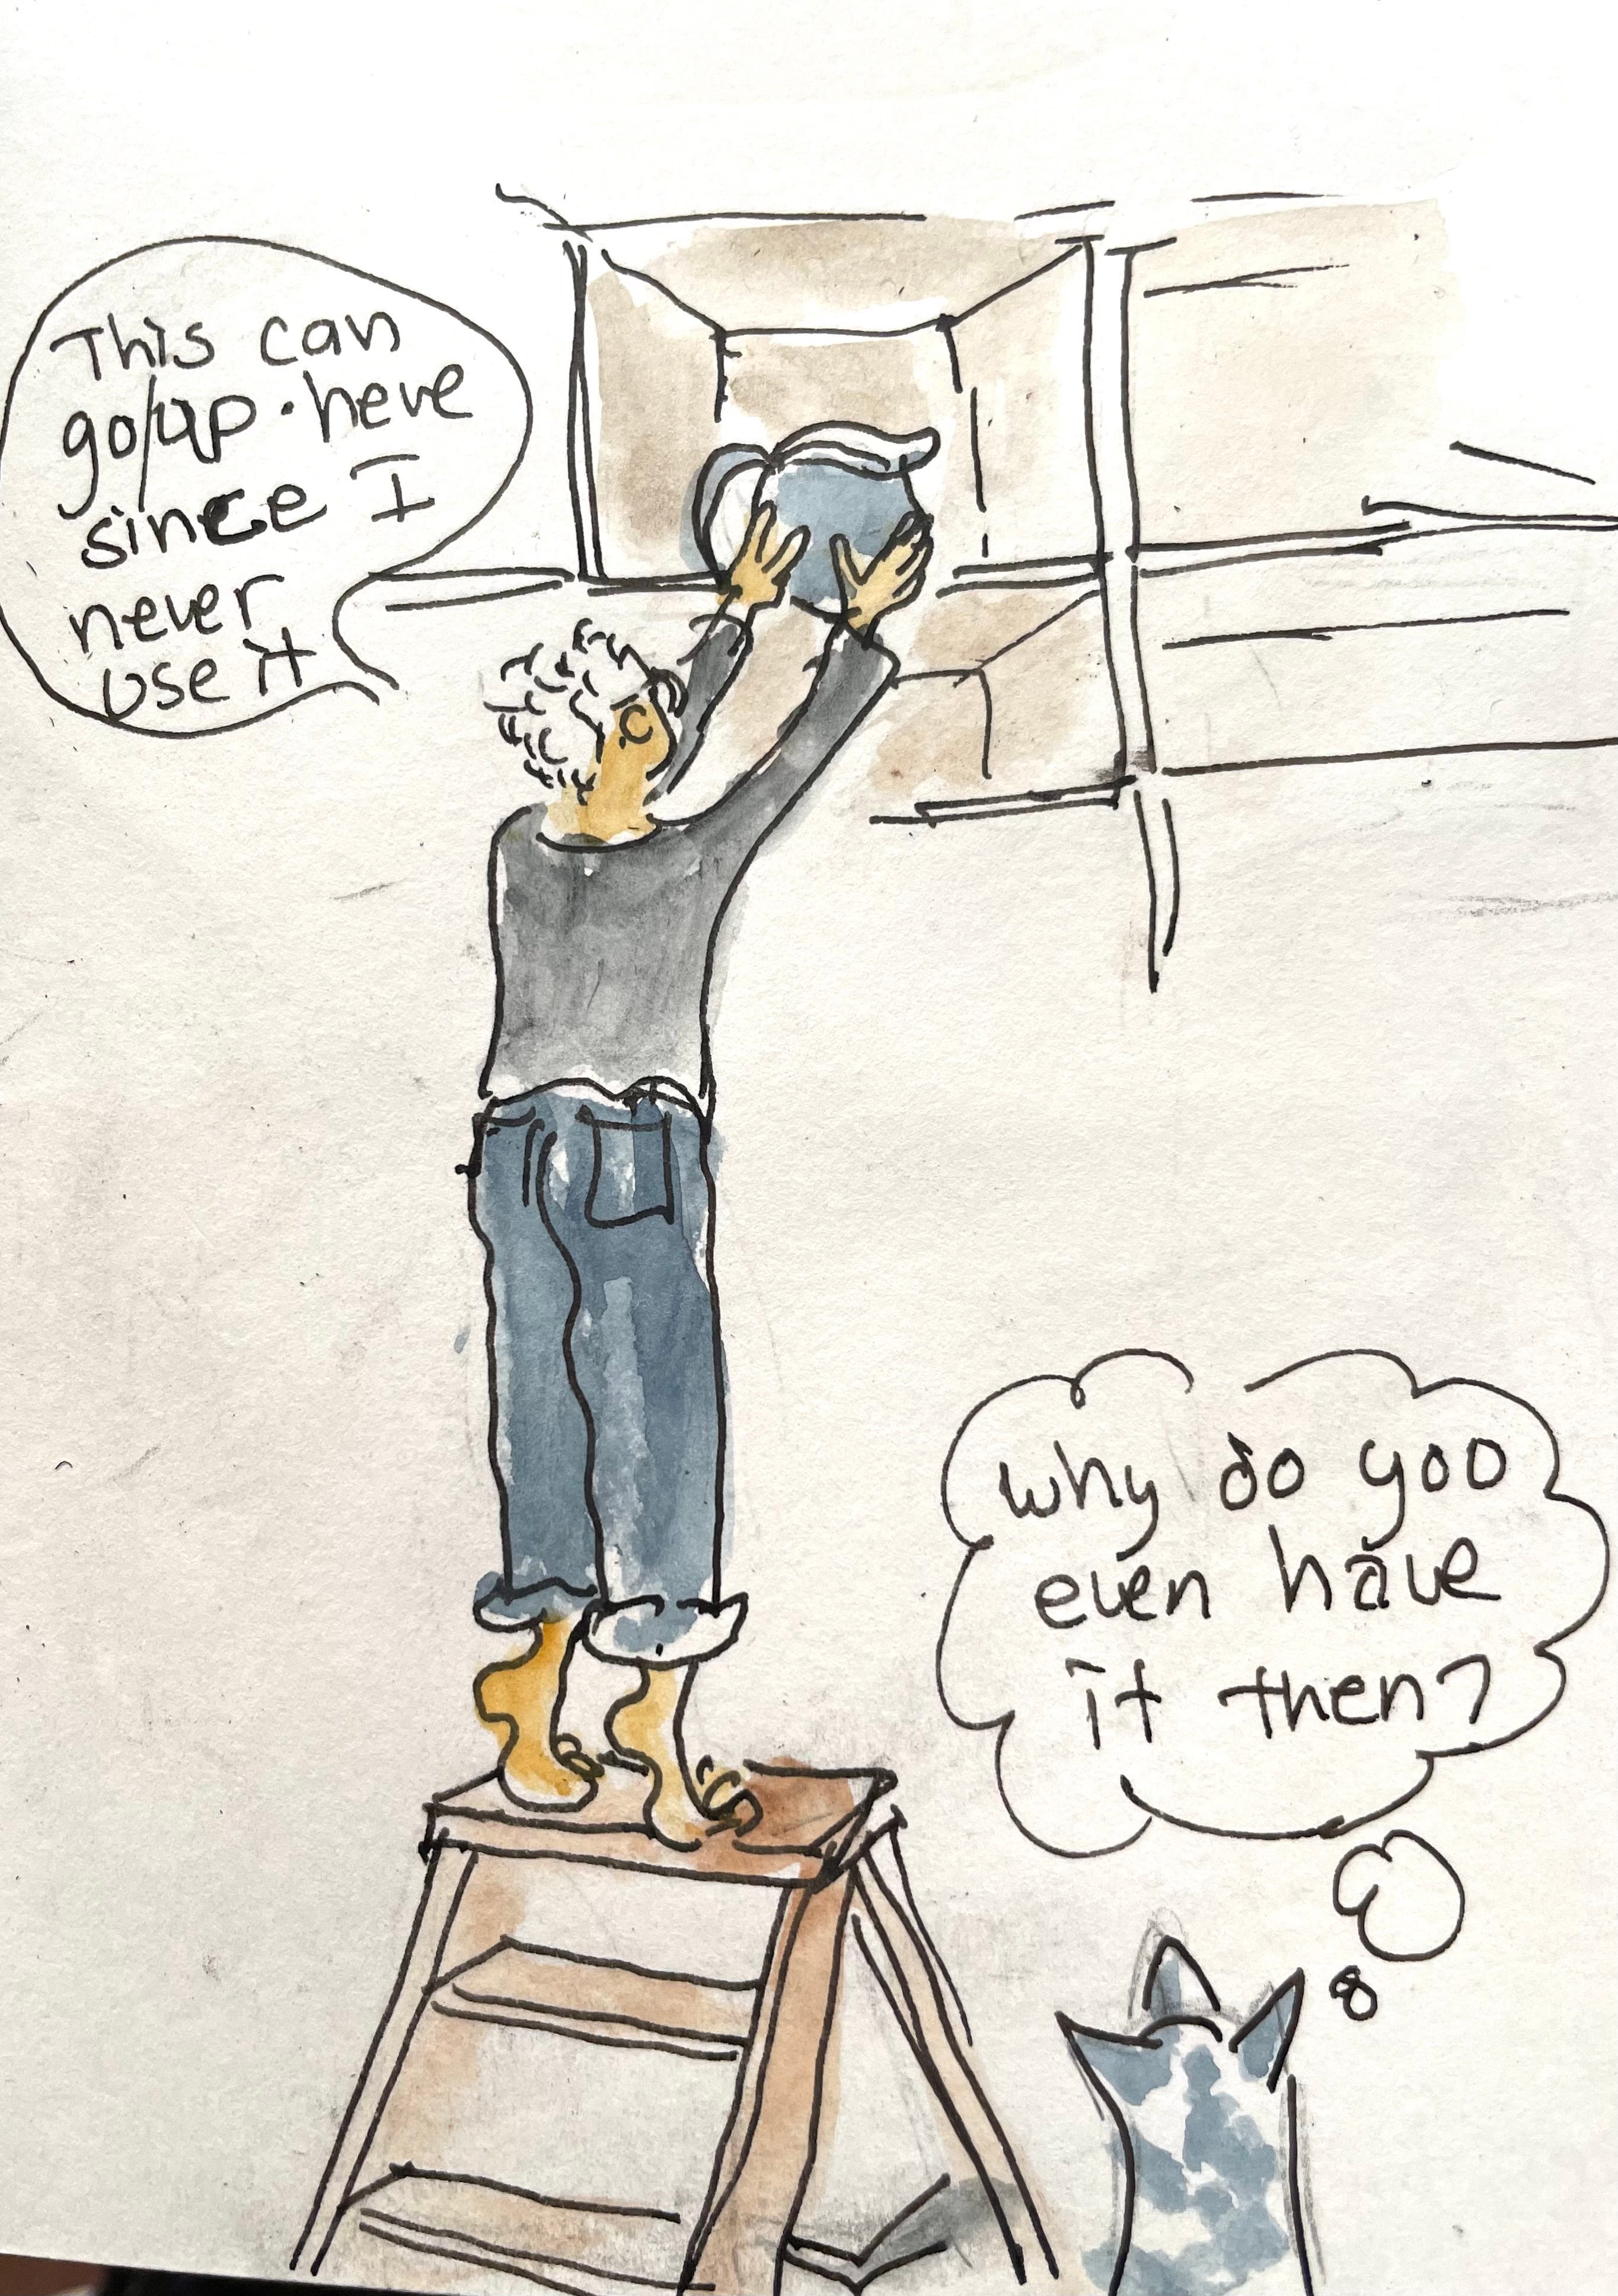 This can
go up here
since I
never
use it
why do you
even have
it then?